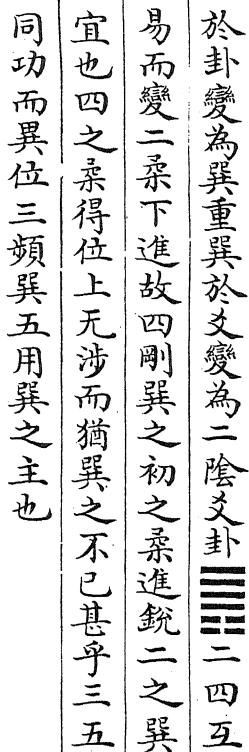 於卦變為巽重巽於爻變為二陰爻卦䷠二四互
易而變二柔下進故四剛巽之初之柔進銳二之巽
宜也四之柔得位上无涉而猶巽之不已甚乎三五
同功而異位三頻巽五用巽之主也